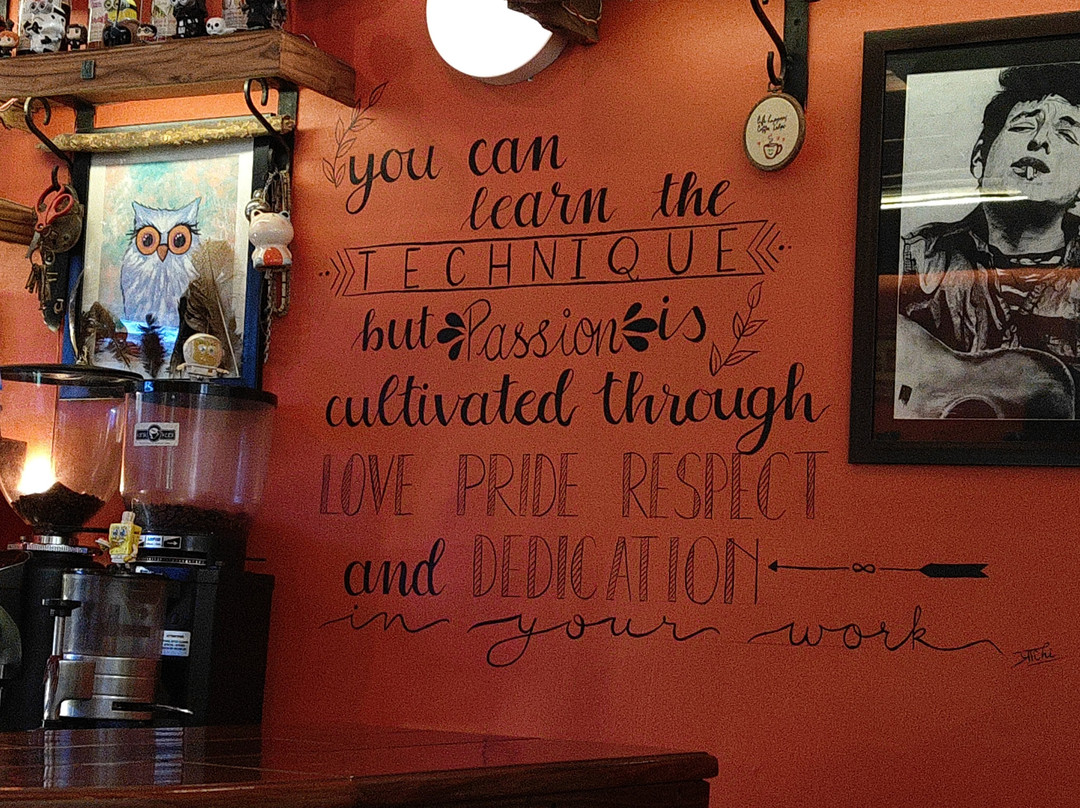 you can
learn the
TECHNIQUE
but Passion is
cultivated through
LOVE PRIDE RESPECT
and DEDICATION
in your work